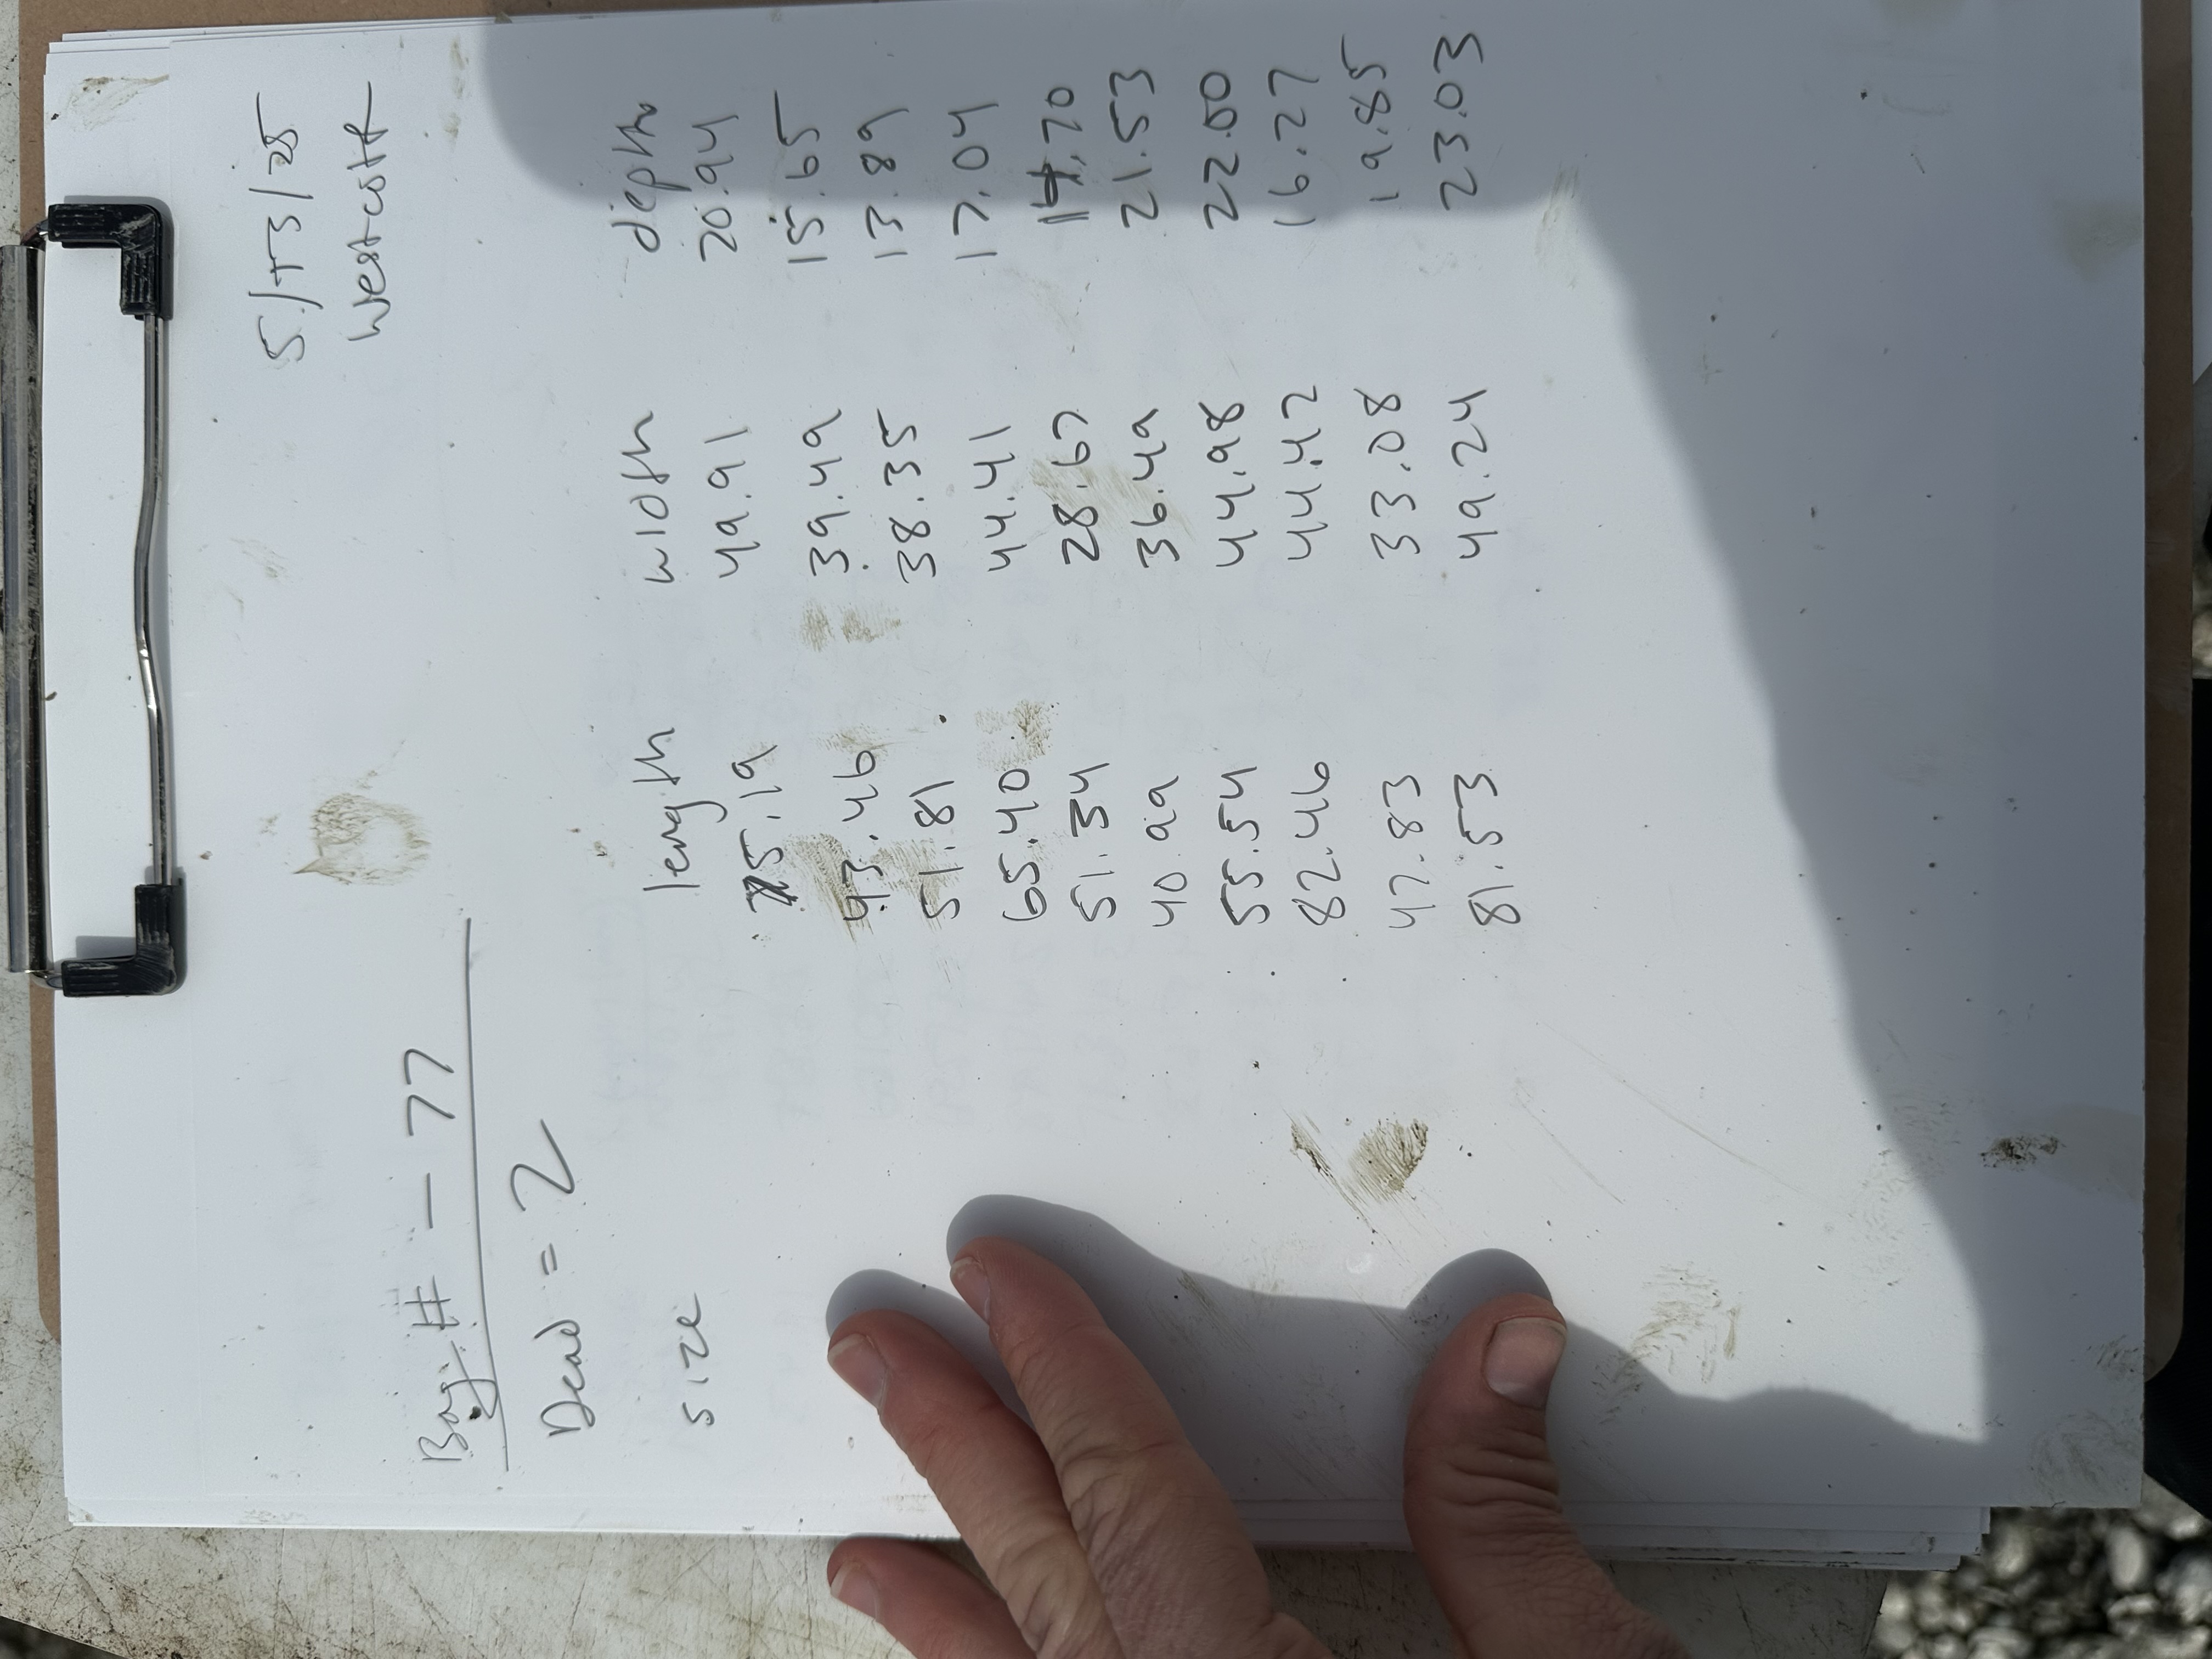 5/13/25
Westcott
Bag # - 77
Dead = 2
size length width depth
75.19 49.91 20.94
43.46 39.49 15.65
51.81 38.35 13.89
65.40 44.41 17.04
51.34 28.67 14.70
40.99 36.49 21.53
55.54 44.98 22.00
82.46 44.42 16.27
47.83 33.08 19.85
81.53 49.24 23.03